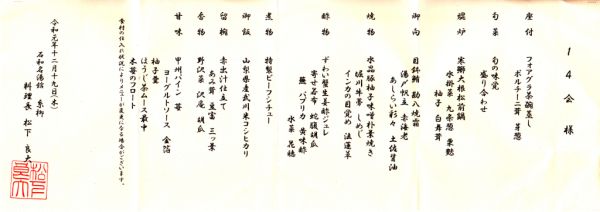 14会 様
座付
フォアグラ茶碗蒸し
ポルチーニ茸 芽葱
旬菜
旬の味覚
盛り合わせ
煖炉
寒鰤大根松前鍋
水掛菜 九条葱 束麩
柚子 白舞茸
御向
目鉢鮪 勘八焼霜
湯〆帆立 赤海老
あしらい彩々 土佐醤油
焼物
水晶豚柚子味噌朴葉焼き
堀川牛蒡 しめじ
インカの目覚め 法蓮草
酢物
ずわい蟹生姜酢ジュレ
寄せ若布 蛇腹胡瓜
蕪 パプリカ 黄味酢
水菜 花穂
煮物
特製ビーフシチュー
御飯
山梨県産武川米コシヒカリ
留椀
赤出汁仕立て
あみ茸 豆富 三ッ葉
香物
野沢菜 沢庵 胡瓜
甘味
甲州パイン 苺
ヨーグルトソース 金箔
柚子羹
ほうじ茶ムース最中
木苺のフロート
食材の仕入れ状況によりメニューが変更になる場合がございます。
令和元年十二月十九日(木)
石和名湯館 糸柳
料理長 松下 良大